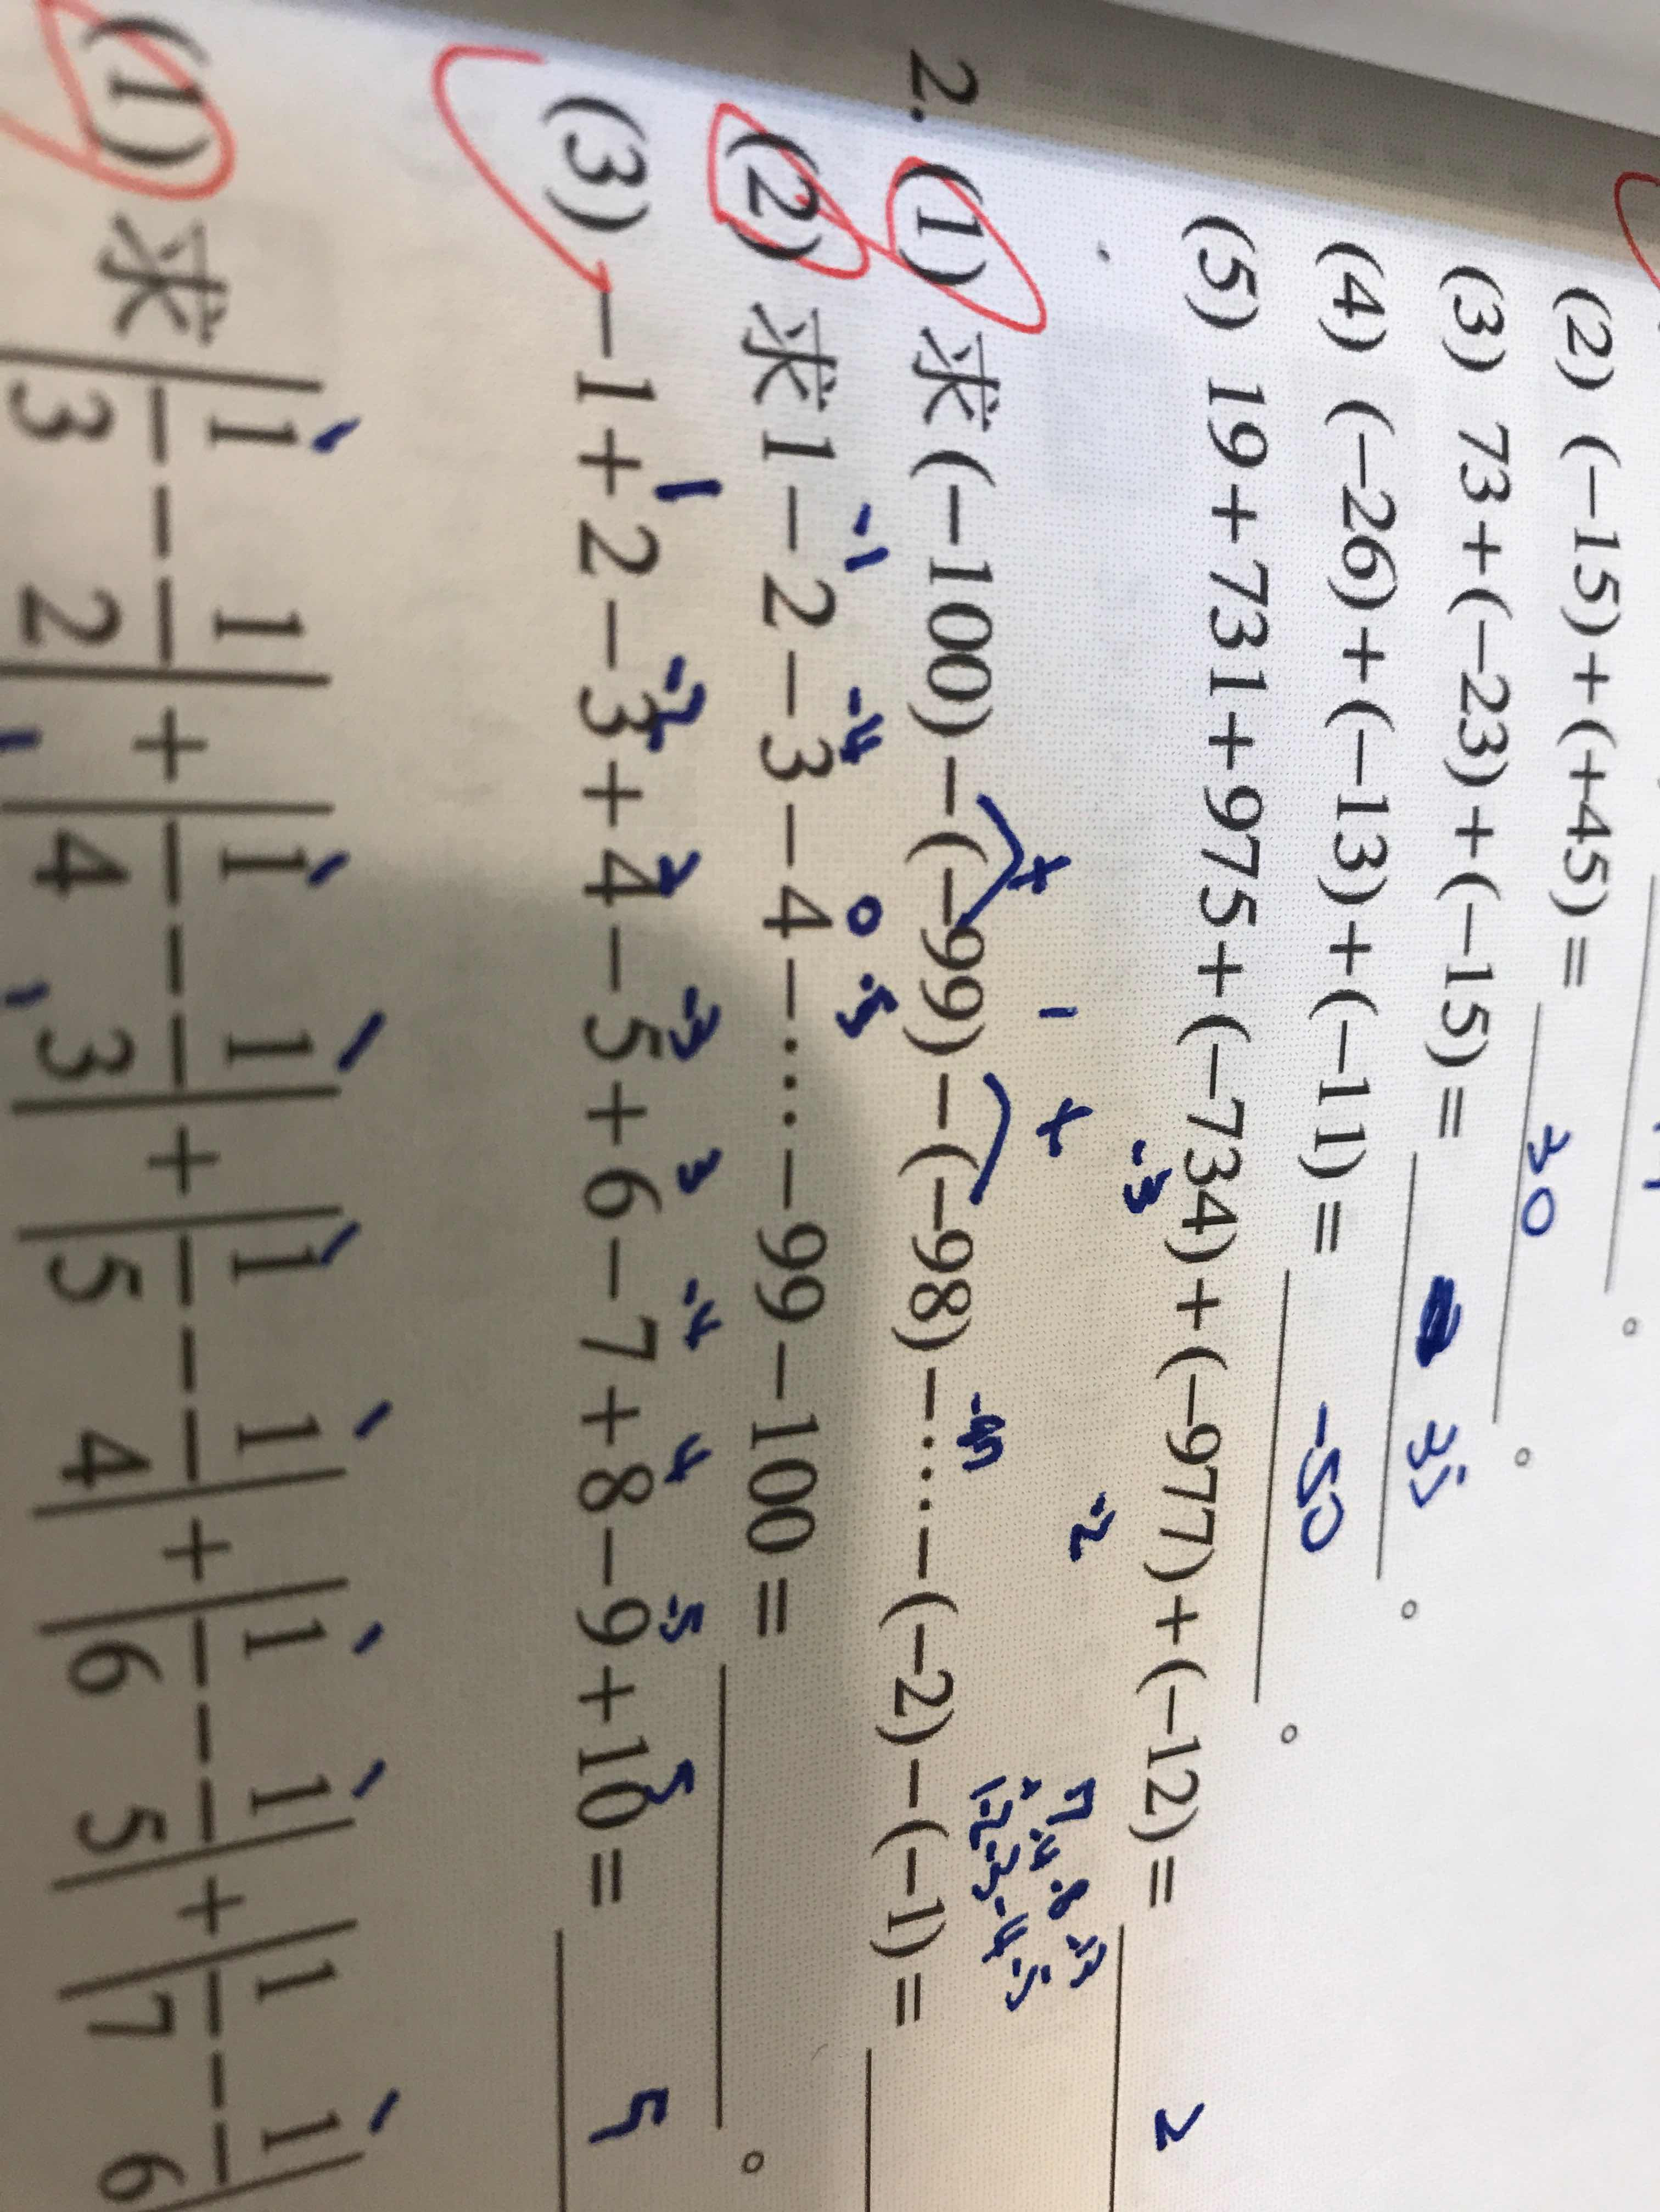 (2) (−15)+(+45)= 30 。
(3) 73+(−23)+(−15)= 35 。
(4) (−26)+(−13)+(−11)= -50 。
(5) 19+731+975+(−734)+(−977)+(−12)= 2
-3 -2
2. (1) 求(−100)−(−99)−(−98)−……−(−2)−(−1)=
+ 1 +
(2) 求1−2−3−4−……−99−100= 。
-1 -4 0 -5
(3) −1+2−3+4−5+6−7+8−9+10= 5
1 -2 2 -3 3 -4 4 -5 5
(1) 求|1/3−1/2|+|1/4−1/3|+|1/5−1/4|+|1/6−1/5|+|1/7−1/6|